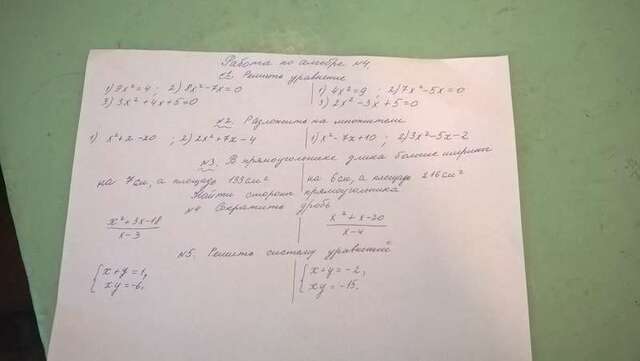 Работа по алгебре №4.
№1. Решить уравнение
1) 9x²=4; 2) 8x²-7x=0 1) 4x²=9; 2) 7x²-5x=0
3) 3x²+4x+5=0 3) 2x²-3x+5=0
№2. Разложить на множители
1) x²+2-20; 2) 2x²+7x-4 1) x²-7x+10; 2) 3x²-5x-2
№3. В прямоугольнике длина больше ширины
на 7см, а площадь 133см² на 6см, а площадь 216см²
Найти стороны прямоугольника
№4 Сократить дробь
x²+3x-18 x²+x-20
x-3 x-4
№5. Решить систему уравнений
x+y=1, x+y=-2,
xy=-6. xy=-15.